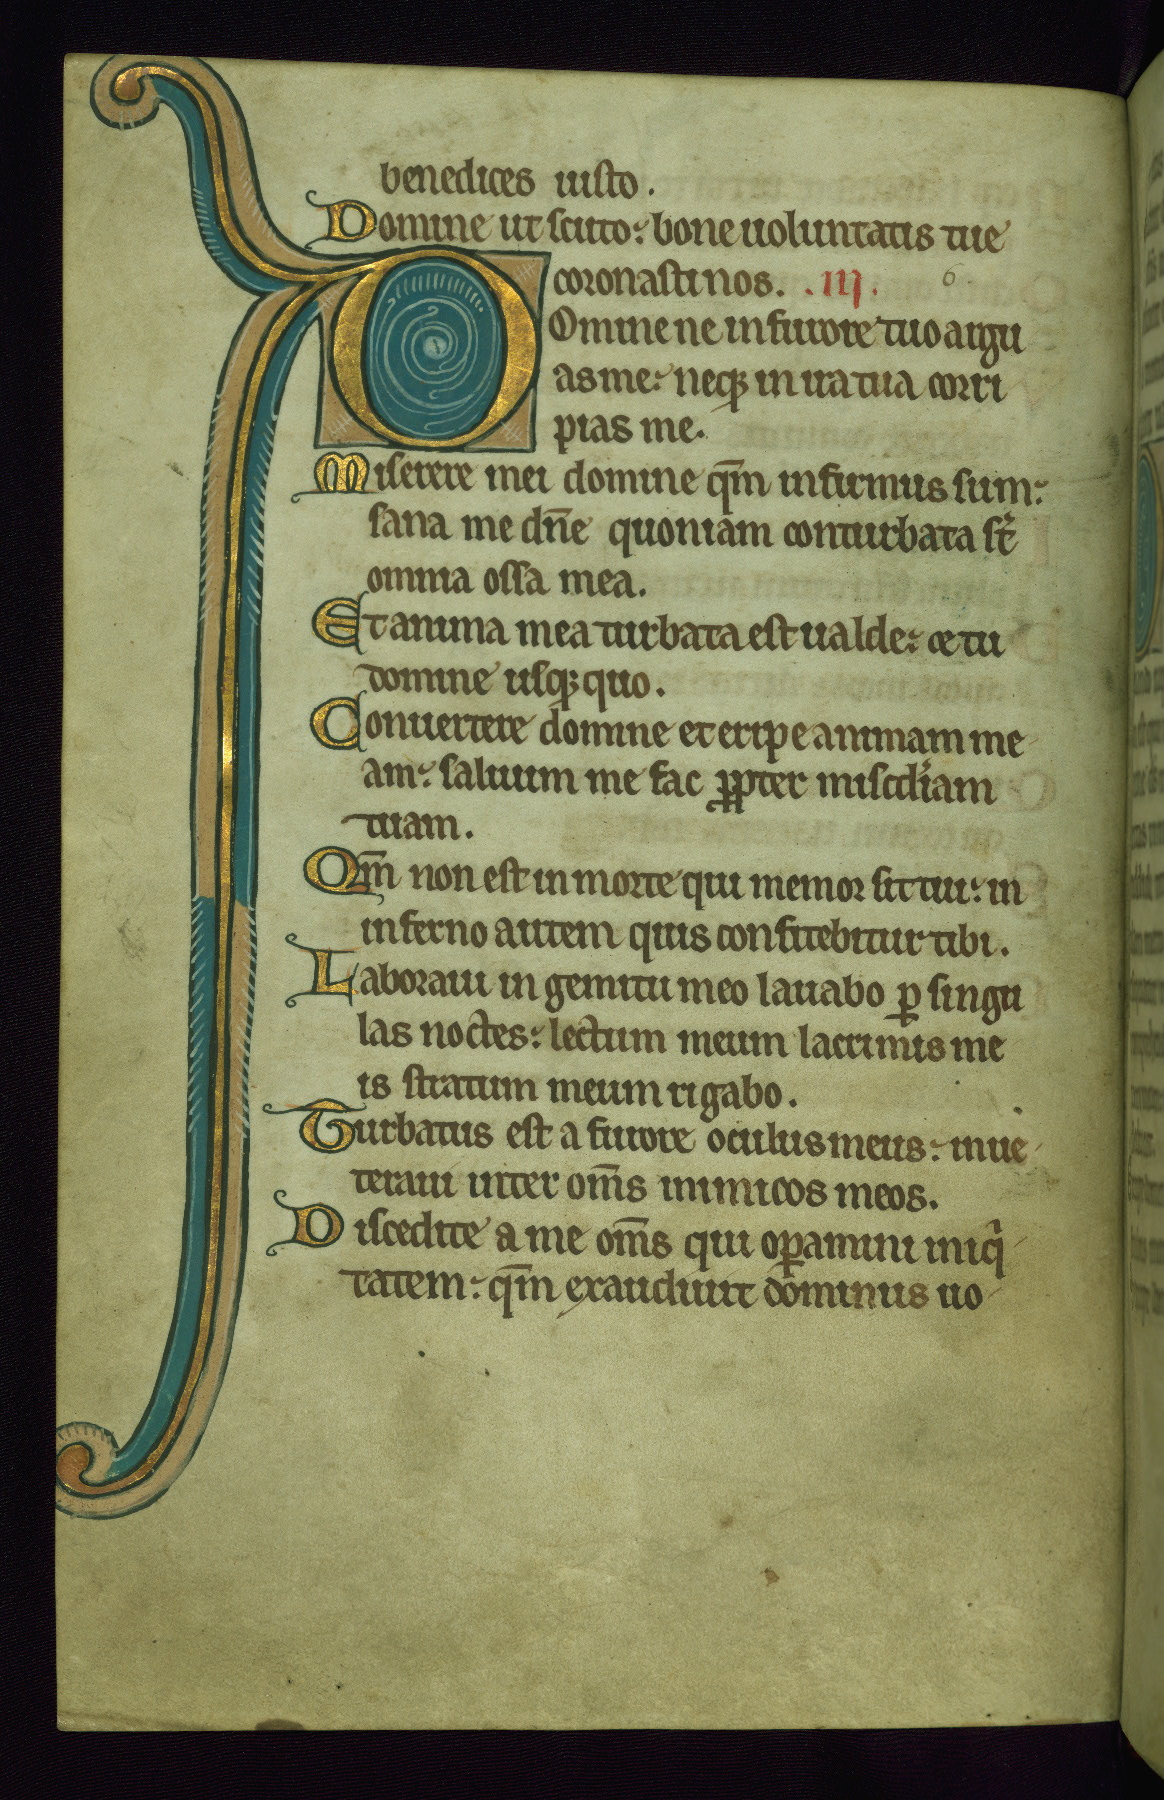 benedices iusto.
Domine ut scuto: bone uoluntatis tue
coronasti nos. .iij. 6
Domine ne in furore tuo argu
as me: neq; in ira tua corri
pias me.
Miserere mei domine qm̄ infirmus sum:
sana me dn̄e quoniam conturbata st̄
omnia ossa mea.
Et anima mea turbata est ualde: et tu
domine usq; quo.
Conuertere domine et eripe animam me
am: saluum me fac ꝓpter misc̄diam
tuam.
Qm̄ non est in morte qui memor sit tui: in
inferno autem quis confitebitur tibi.
Laboraui in gemitu meo lauabo ꝑ singu
las noctes: lectum meum lacrimis me
is stratum meum rigabo.
Turbatus est a furore oculus meus: inue
teraui inter om̄s inimicos meos.
Discedite a me om̄s qui oꝑamini iniqͥ
tatem: qm̄ exaudiuit dominus uo